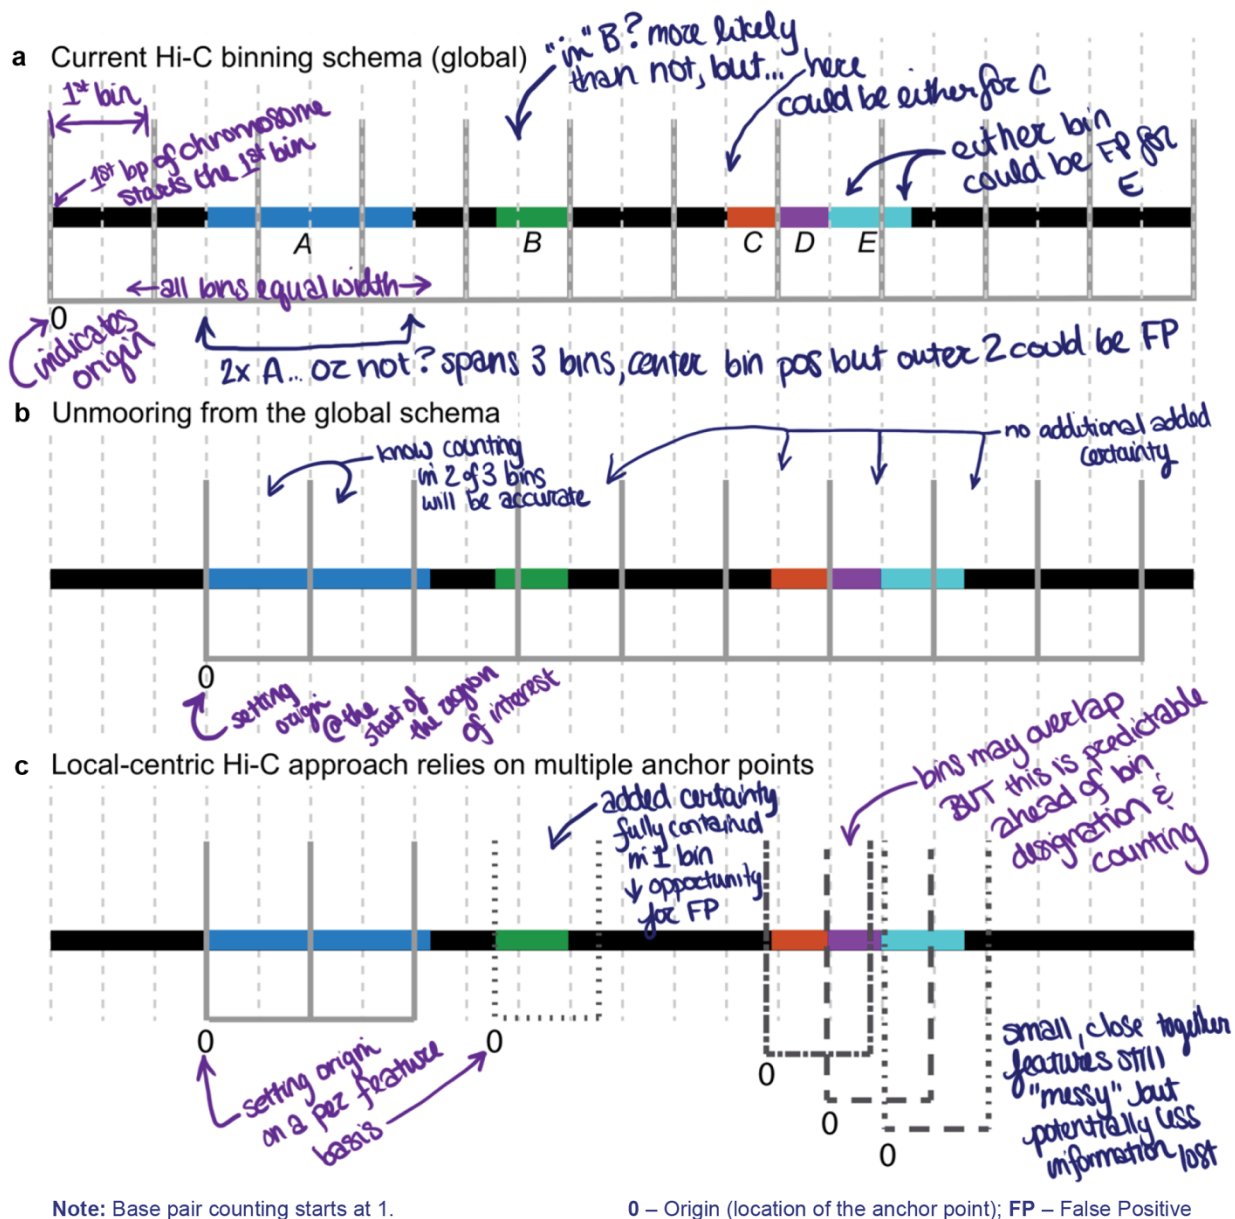 a Current Hi-C binning schema (global)
"in" B? more likely
than not, but...
here
could be either for C
either bin
could be FP for
E
1st bin
1st bp of chromosome
starts the 1st bin
A
B
C
D
E
←all bins equal width→
0
indicates
origin
2x A... or not? spans 3 bins, center bin pos but outer 2 could be FP
b Unmooring from the global schema
know counting
in 2 of 3 bins
will be accurate
no additional added
certainty
0
setting
origin
@ the
start of
the region
of interest
c Local-centric Hi-C approach relies on multiple anchor points
added certainty
fully contained
in 1 bin
↓ opportunity
for FP
bins may overlap
BUT this is predictable
ahead of bin
designation &
counting
0
0
0
0
0
setting origin
on a per feature
basis
small, close together
features still
"messy" but
potentially less
information lost
Note: Base pair counting starts at 1.
0 – Origin (location of the anchor point); FP – False Positive